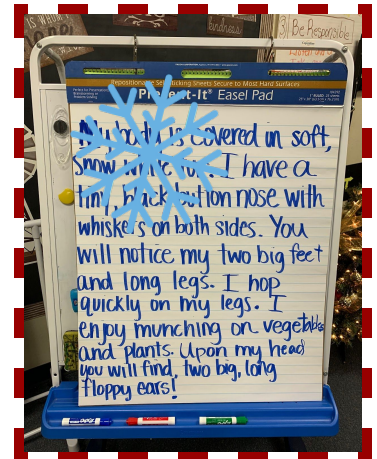 kindness
3) Be Responsible
Repositionable Self-Sticking Sheets Secure to Most Hard Surfaces
Present-It® Easel Pad
My body is covered in soft,
Snow white fur. I have a
tiny, black button nose with
whiskers on both sides. You
will notice my two big feet
and long legs. I hop
quickly on my legs. I
enjoy munching on vegetables
and plants. Upon my head
you will find, two big, long
floppy ears!
EXPO